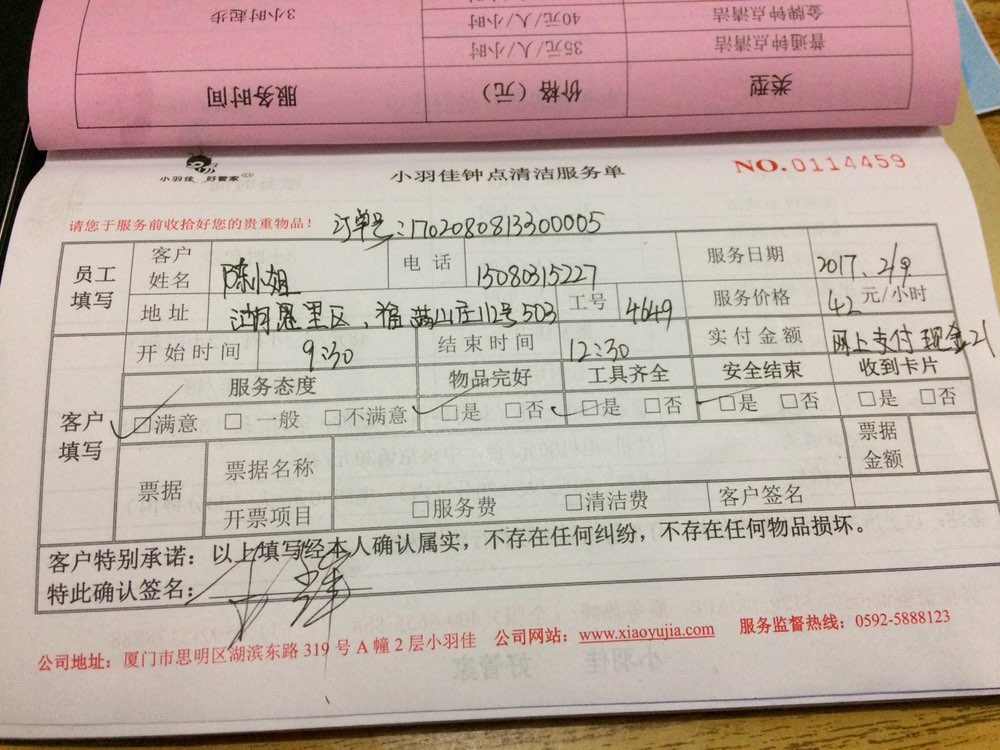 3小时起步 40元/人/小时 金牌钟点清洁
35元/人/小时 普通钟点清洁
服务时间 价格（元） 类型
小羽佳 好管家
小羽佳钟点清洁服务单
NO.0114459
请您于服务前收拾好您的贵重物品！
订单号:1702080813300005
员工填写 客户姓名 陈小姐 电话 15080315227 服务日期 2017.2/9
地址 503 工号 4649 服务价格 42元/小时
客户填写 开始时间 9:30 结束时间 12:30 实付金额 网上支付 现金21
服务态度 物品完好 工具齐全 安全结束 收到卡片
□满意 □一般 □不满意 □是 □否 □是 □否 □是 □否 □是 □否
票据 票据名称 票据金额
开票项目 □服务费 □清洁费 客户签名
客户特别承诺：以上填写经本人确认属实，不存在任何纠纷，不存在任何物品损坏。
特此确认签名：
公司地址：厦门市思明区湖滨东路 319 号 A 幢 2 层小羽佳 公司网站：www.xiaoyujia.com 服务监督热线：0592-5888123